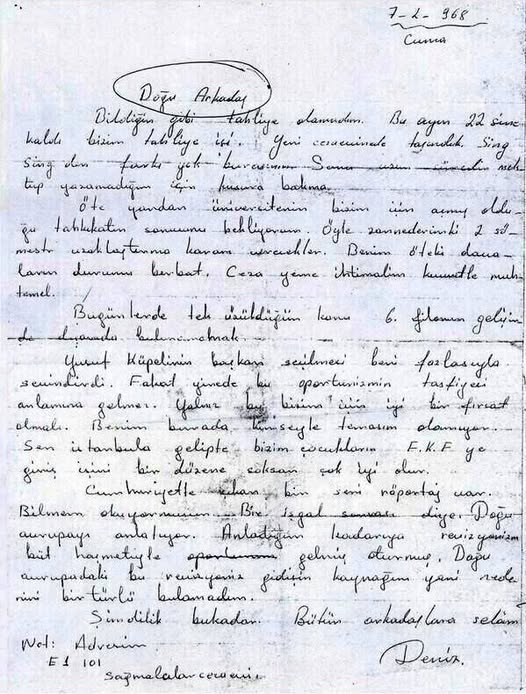 7-2-968
Cuma
Doğu Arkadaş
Bildiğin gibi tahliye olamadım. Bu ayın 22 sine
kaldı bizim tahliye işi. Yeni cezaevinede taşındık. Sing
Sing den farkı yok buranın. Sana uzun süredir mek
tup yazamadığım için kusura bakma.
Öte yandan üniversitenin bizim için açmış oldu-
ğu tahkikatın sonucunu bekliyorum. Öyle zannederimki 2 sö-
mestr uzaklaştırma kararı verecekler. Benim öteki dava-
ların durumu berbat. Ceza yeme ihtimalim kuvvetle muh-
temel.
Bugünlerde tek üzüldüğüm konu 6. filonun gelişin
de dışarıda bulunamamak.
Yusuf Küpelinin başkan seçilmesi beni fazlasıyla
sevindirdi. Fakat yinede bu oportunizmin tasfiyesi
anlamına gelmez. Yalnız bu bizim için iyi bir fırsat
olmalı. Benim burada kimseyle temasım olamıyor.
Sen istanbula gelipte bizim çocukların F.K.F ye
giriş işini bir düzene soksan çok iyi olur.
Cumhuriyette çıkan bir seri röportaj var.
Bilmem okuyormusun. Bir işgal sonrası diye. Doğu
avrupayı anlatıyor. Anladığım kadarıyla revizyonizm
büt haşmetiyle gelmiş oturmuş. Doğu
avrupadaki bu revizyonist gidişin kaynağını yani nede
nini bir türlü bulamadım.
Şimdilik bukadar. Bütün arkadaşlara selâm
Not: Adresim
E1 101
Sağmalcılar cezaevi.
Deniz.